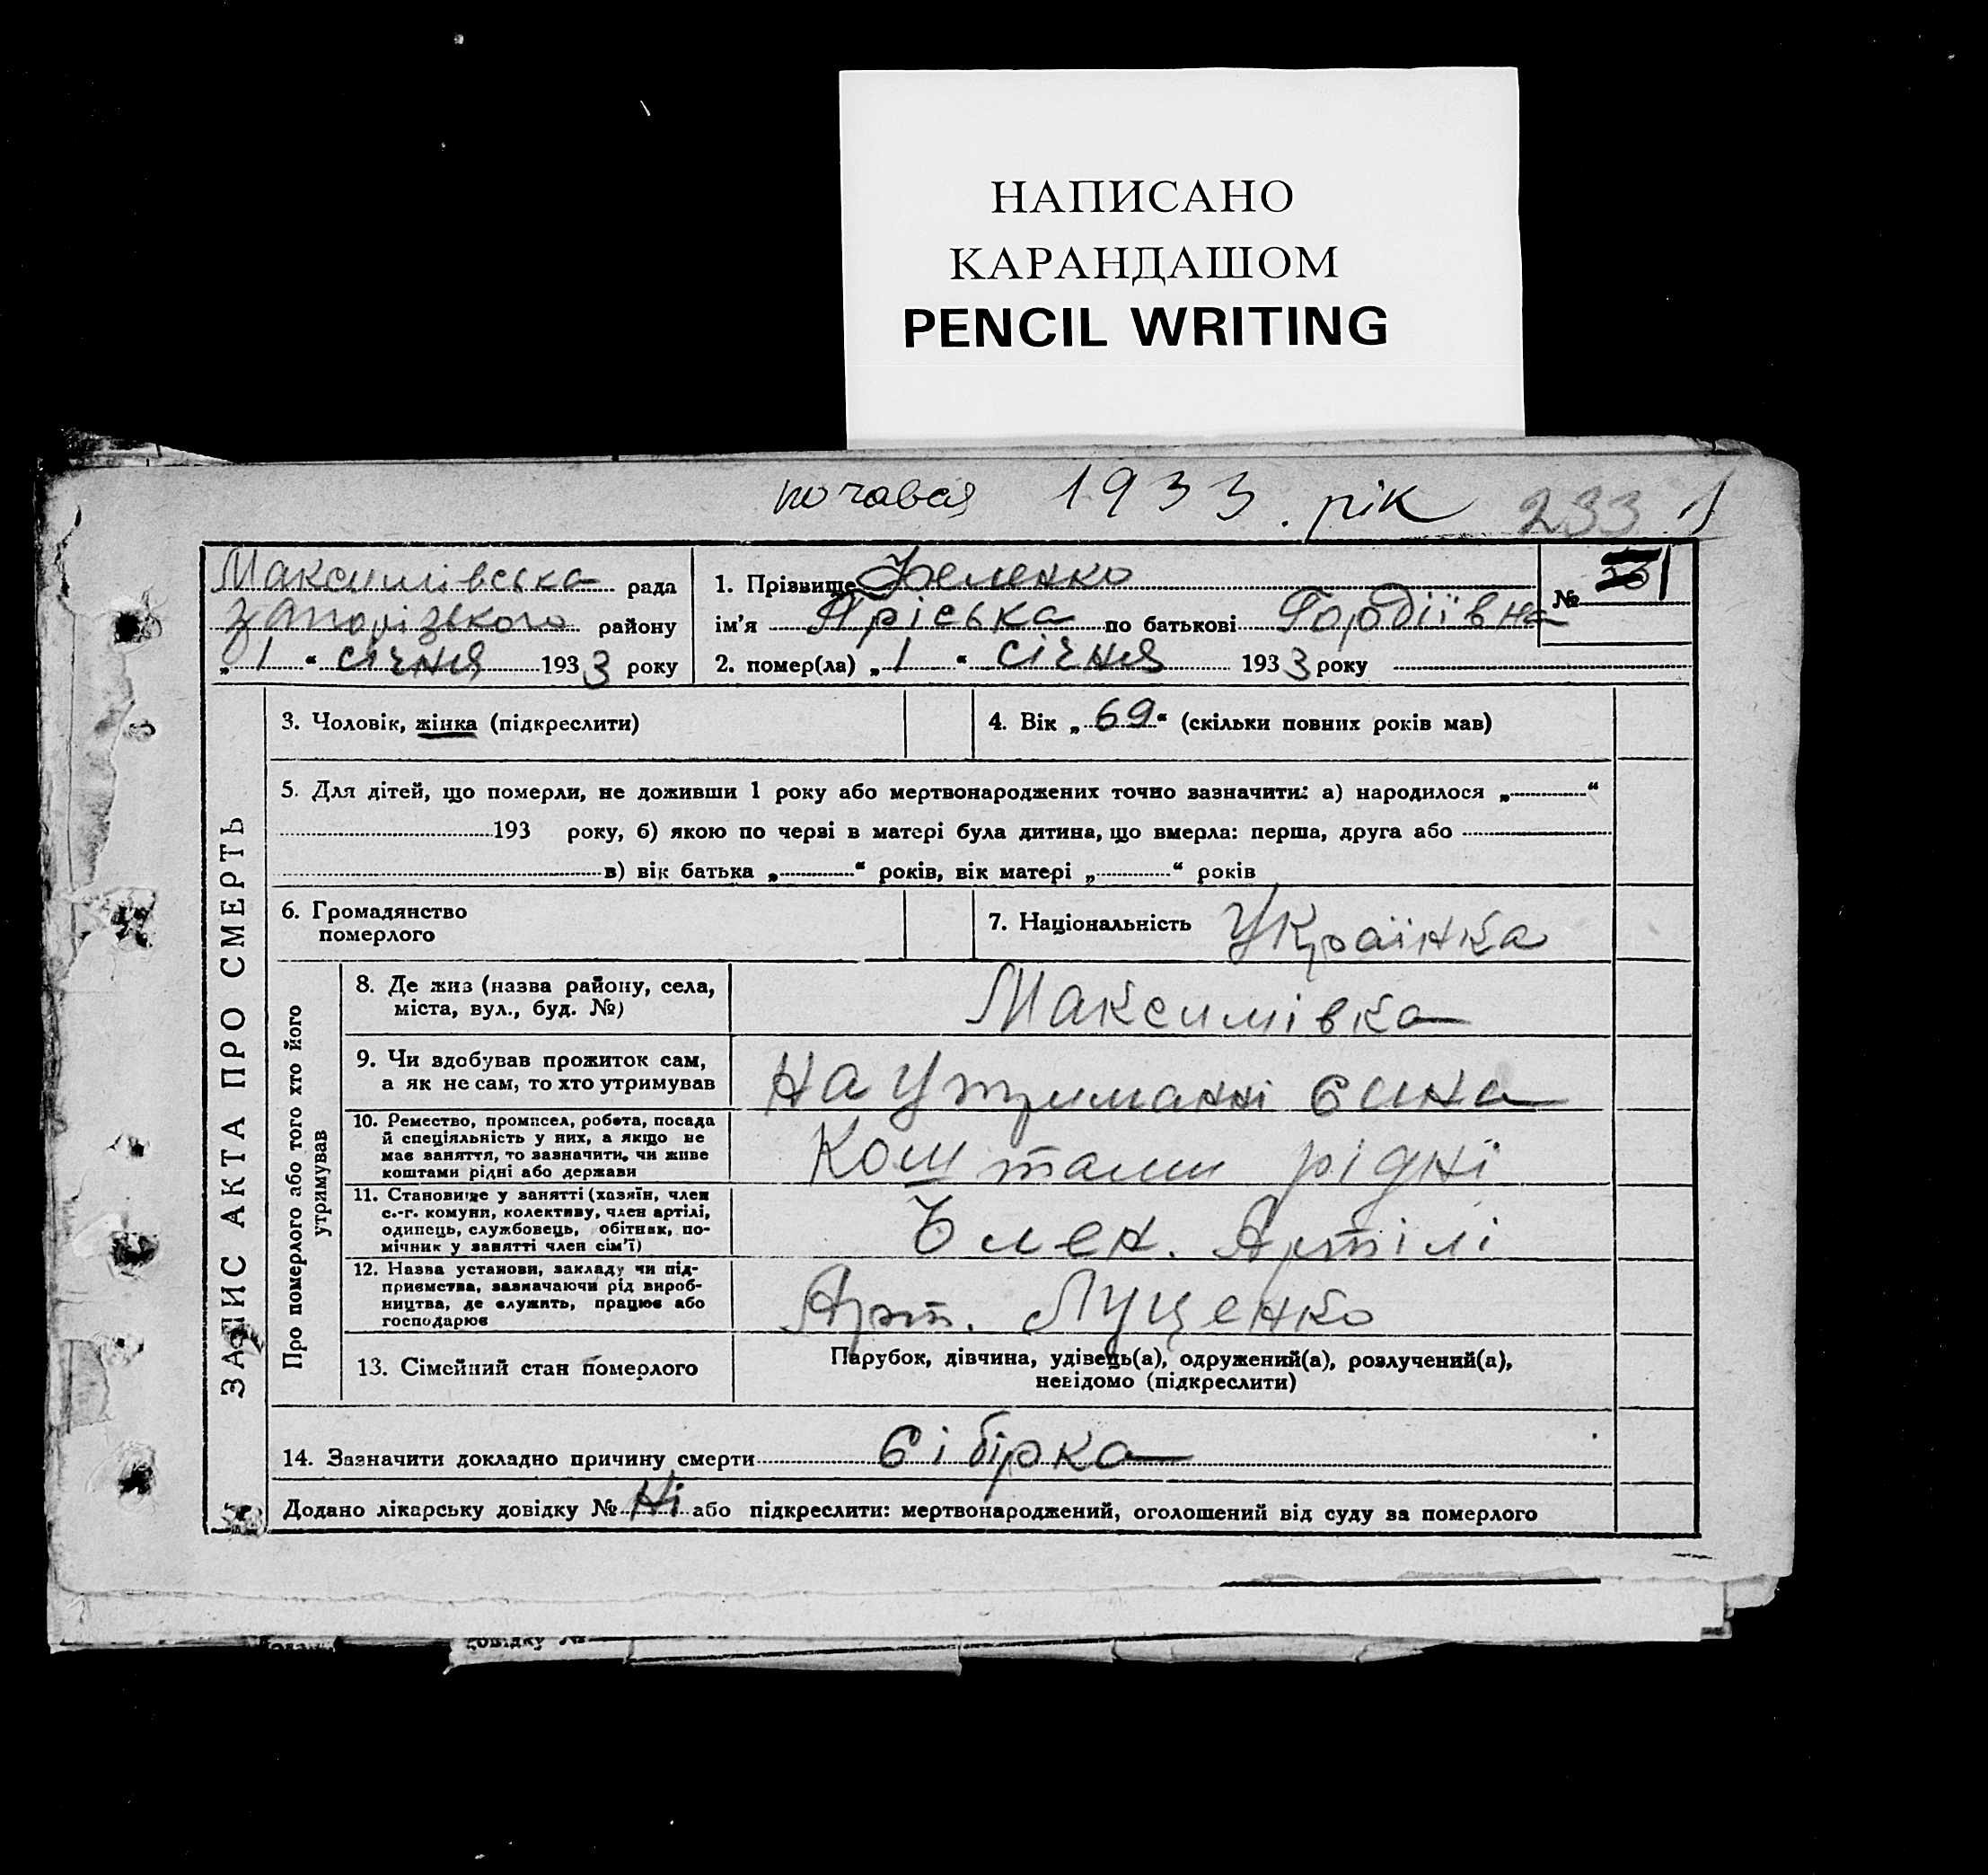 НАПИСАНО
КАРАНДАШОМ
PENCIL WRITING
почався 1933. рік 233
ЗАПИС АКТА ПРО СМЕРТЬ
Максимівська рада
Запорізького району
„1“ січня 1933 року
1. Прізвище
ім’я Пріська по батькові Гордіївна
2. помер(ла) „1“ січня 1933 року
№ 1
3. Чоловік, жінка (підкреслити)
4. Вік „69“ (скільки повних років мав)
5. Для дітей, що померли, не доживши 1 року або мертвонароджених точно зазначити: а) народилося „ “
193 року, б) якою по черзі в матері була дитина, що вмерла: перша, друга або
в) вік батька „ “ років, вік матері „ “ років
6. Громадянство
померлого
7. Національність Українка
Про померлого або того хто його
утримував
8. Де жив (назва району, села,
міста, вул., буд. №)
Максимівка
9. Чи здобував прожиток сам,
а як не сам, то хто утримував
на Утриманні сина
10. Ремество, промисел, робота, посада
й спеціяльність у них, а якщо не
має заняття, то зазначити, чи живе
коштами рідні або держави
Коштами рідні
11. Становище у занятті (хазяїн, член
с.-г. комуни, колективу, член артілі,
одинець, службовець, обітник, по-
мічник у занятті член сім’ї)
Член. Артілі
12. Назва установи, закладу чи під-
приємства, зазначаючи рід вироб-
ництва, де служить, працює або
господарює
Арт. Луценко
13. Сімейний стан померлого
Парубок, дівчина, удівець(а), одружений(а), розлучений(а),
невідомо (підкреслити)
14. Зазначити докладно причину смерти Сібірка
Додано лікарську довідку № Ні або підкреслити: мертвонароджений, оголошений від суду за померлого
довідку №